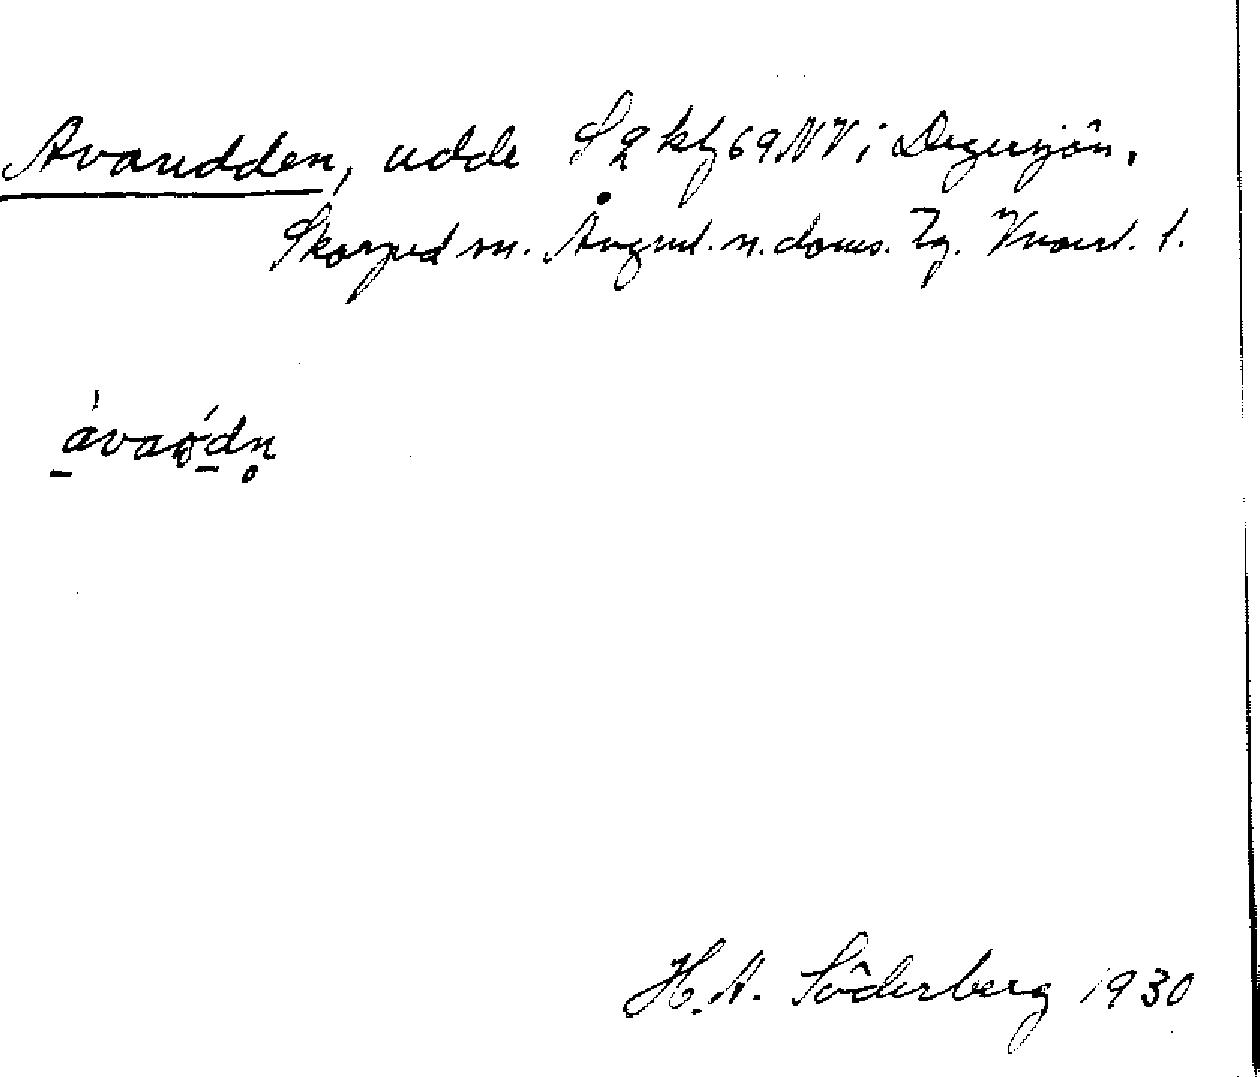 Avaudden, udde S 2 kbl 69 NV i Degersjön.
Skorped sn. Ångml. n. doms. Tg. Vnorrl. l.
ávaødn
H. A. Söderberg 1930